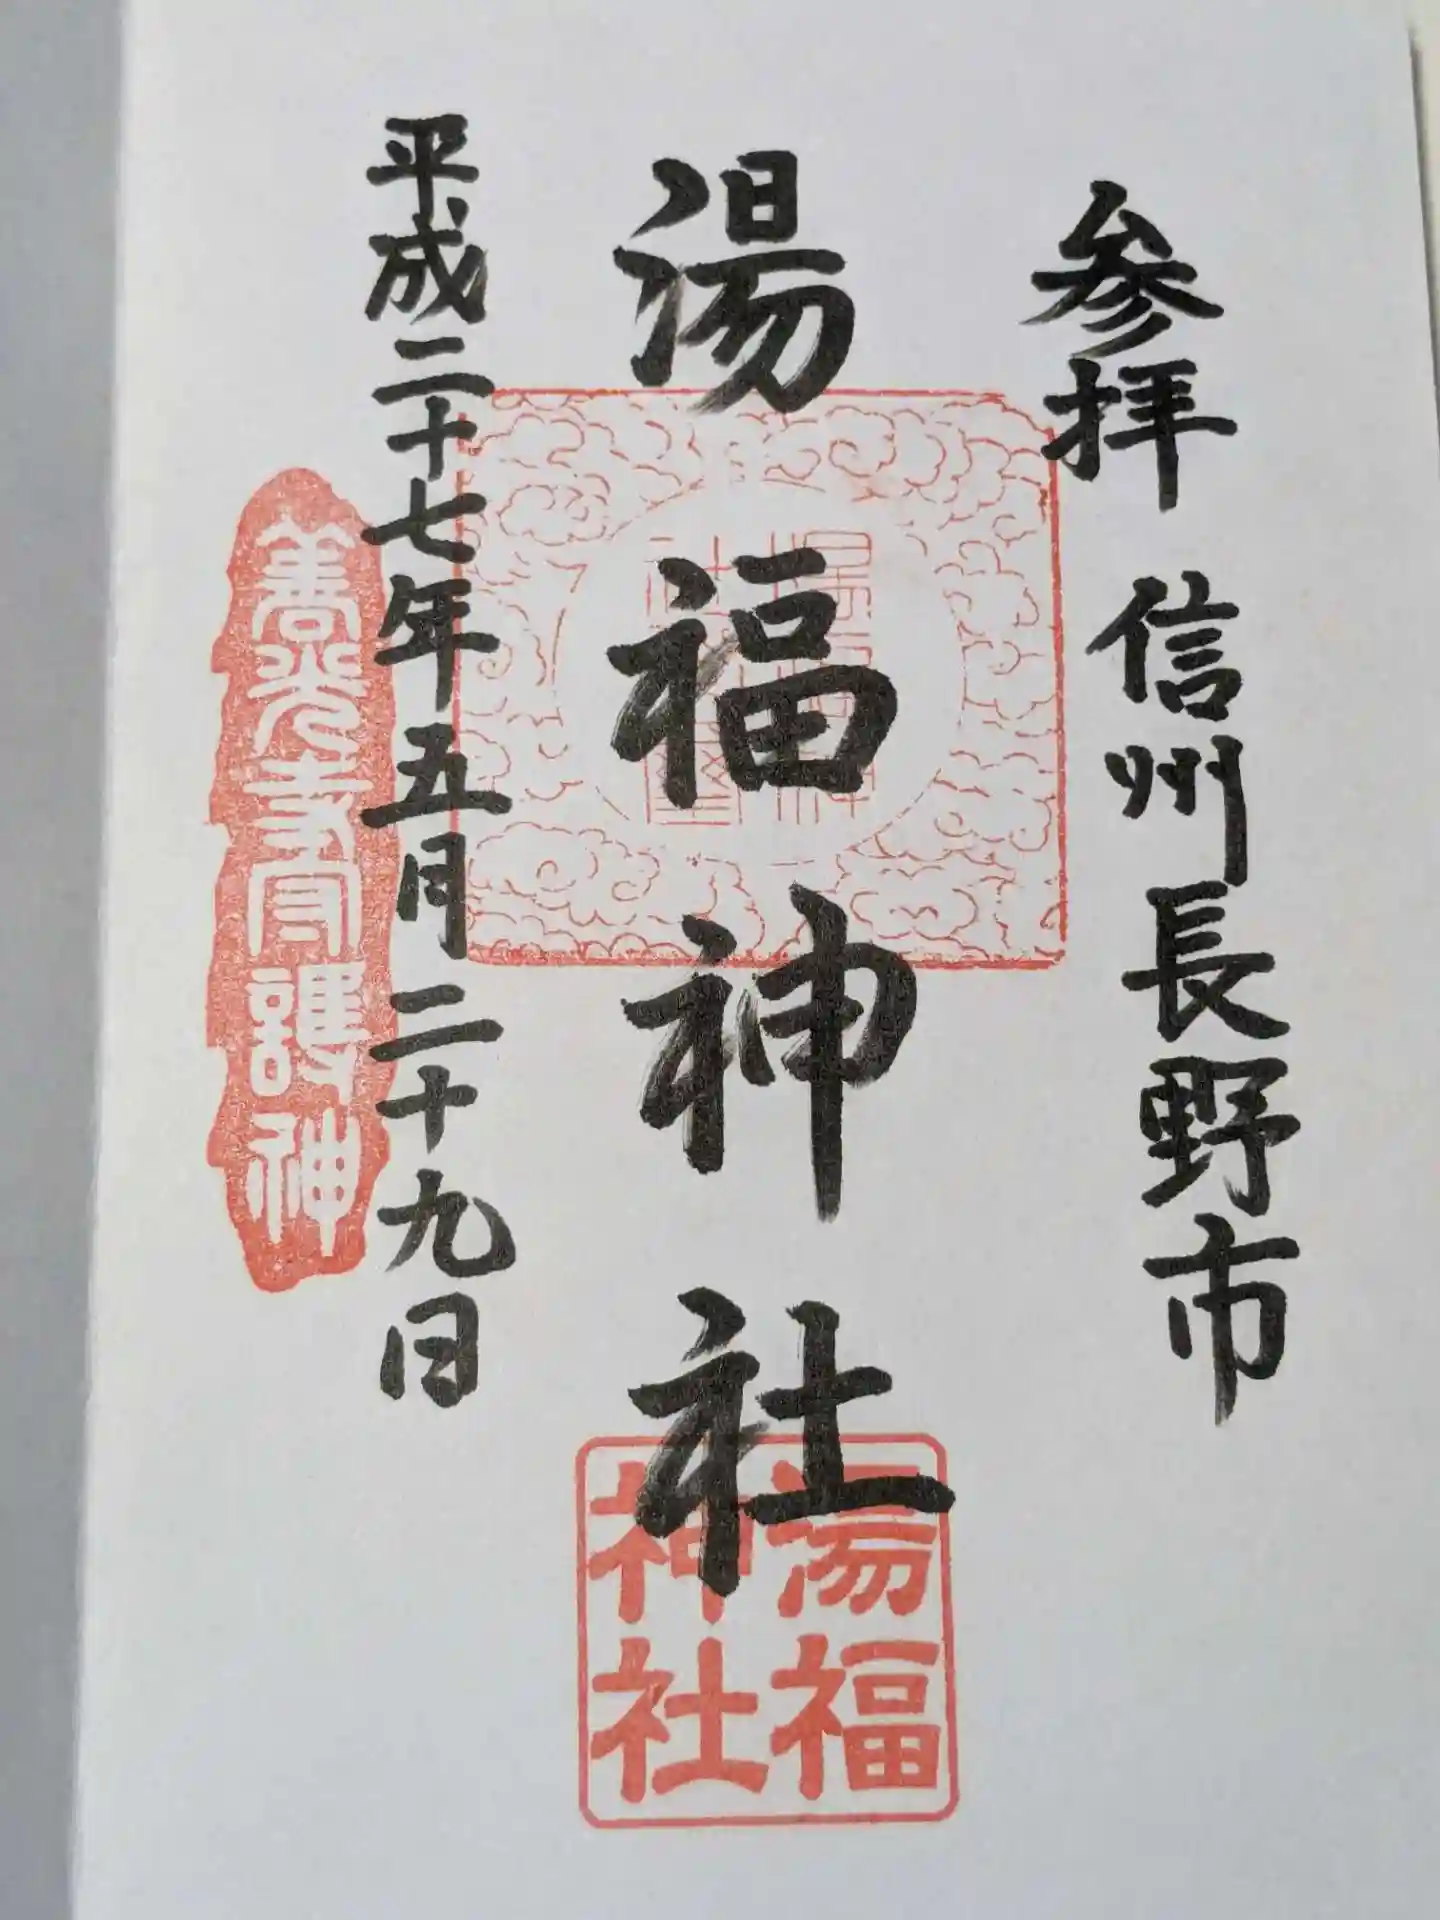 参拝 信州長野市
湯福神社
平成二十七年五月二十九日
善光寺護神
湯福
神社